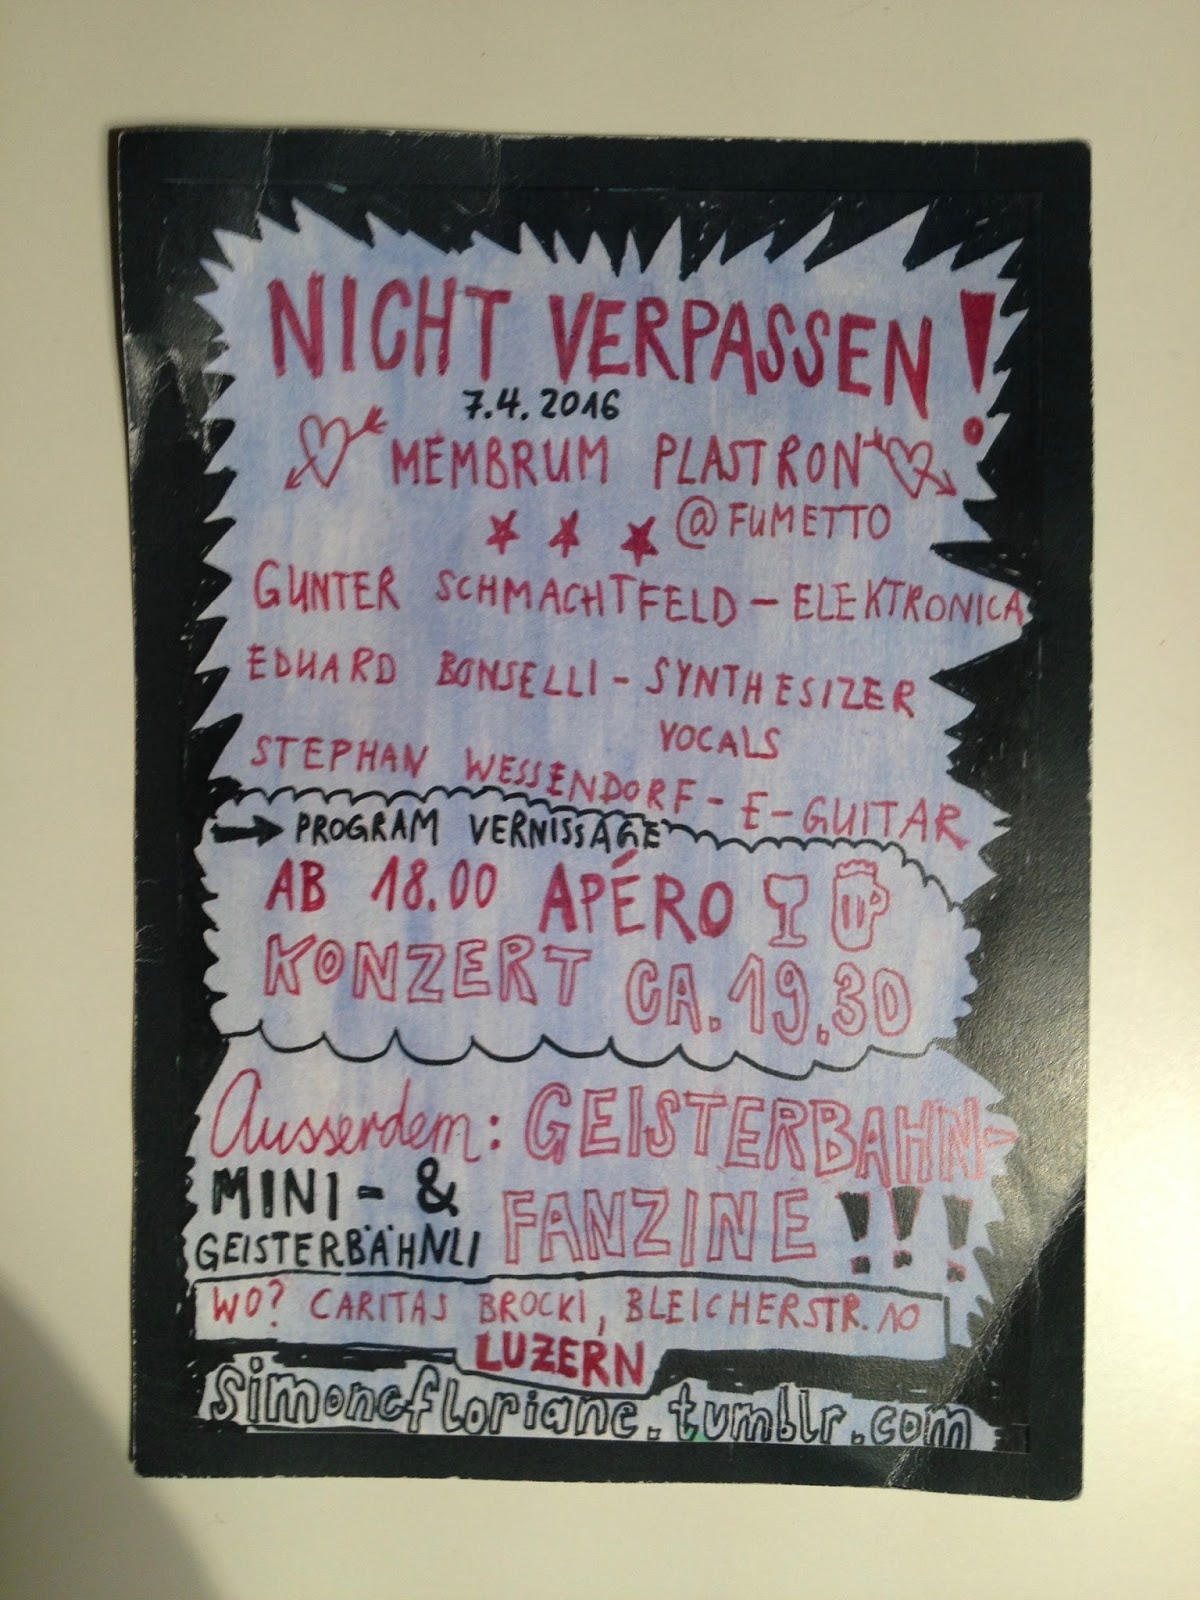 NICHT VERPASSEN!
7.4.2016
MEMBRUM PLASTRON
@FUMETTO
GUNTER SCHMACHTFELD – ELEKTRONICA
EDUARD BONSELLI – SYNTHESIZER
VOCALS
STEPHAN WESSENDORF – E-GUITAR
→ PROGRAM VERNISSAGE
AB 18.00 APÉRO
KONZERT CA. 19.30
Ausserdem: GEISTERBAHN-
MINI- & FANZINE!!!
GEISTERBÄHNLI
WO? CARITAS BROCKI, BLEICHERSTR. 10
LUZERN
simonefloriane.tumblr.com